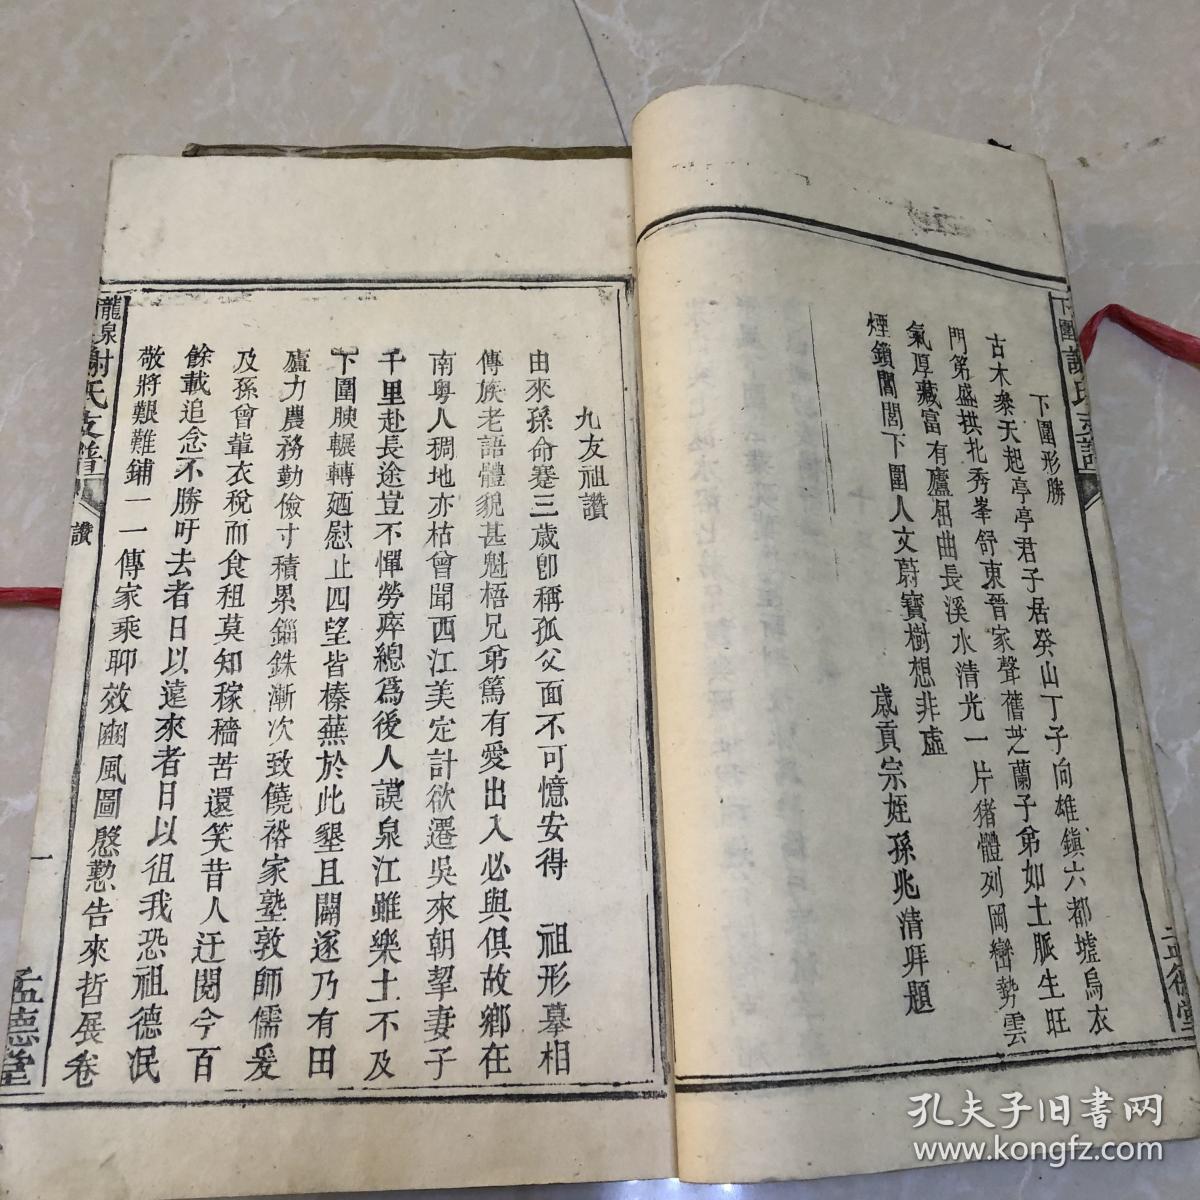 下圍形勝
古木參天起亭亭君子居癸山丁子向雄鎮六都墟烏衣
門第盛拱北秀峯舒東晉家聲舊芝蘭子弟如土脈生旺
氣厚藏富有廬屈曲長溪水清光一片猪體列岡巒勢雲
煙鎖閭閻下圍人文蔚寶樹想非虛
歲貢宗姪孫兆清拜題
九友祖讚
由來孫命蹇三歲卽稱孤父面不可憶安得 祖形摹相
傳族老語體貌甚魁梧兄弟篤有愛出入必與俱故鄉在
南粵人稠地亦枯曾聞西江美定計欲遷吳來朝挈妻子
千里赴長途豈不憚勞瘁總爲後人謨泉江雖樂土不及
下圍腴輾轉廼慰止四望皆榛蕪於此墾且闢遂乃有田
廬力農務勤儉寸積累錙銖漸次致饒裕家塾敦師儒爰
及孫曾輩衣稅而食租莫知稼穡苦還笑昔人迂閱今百
餘載追念不勝吁去者日以遠來者日以徂我恐祖德泯
敬將艱難鋪一一傳家乘聊效豳風圖慇懃告來哲展卷
龍泉謝氏支譜
讚
一
孟德堂
孔夫子旧書网
www.kongfz.com